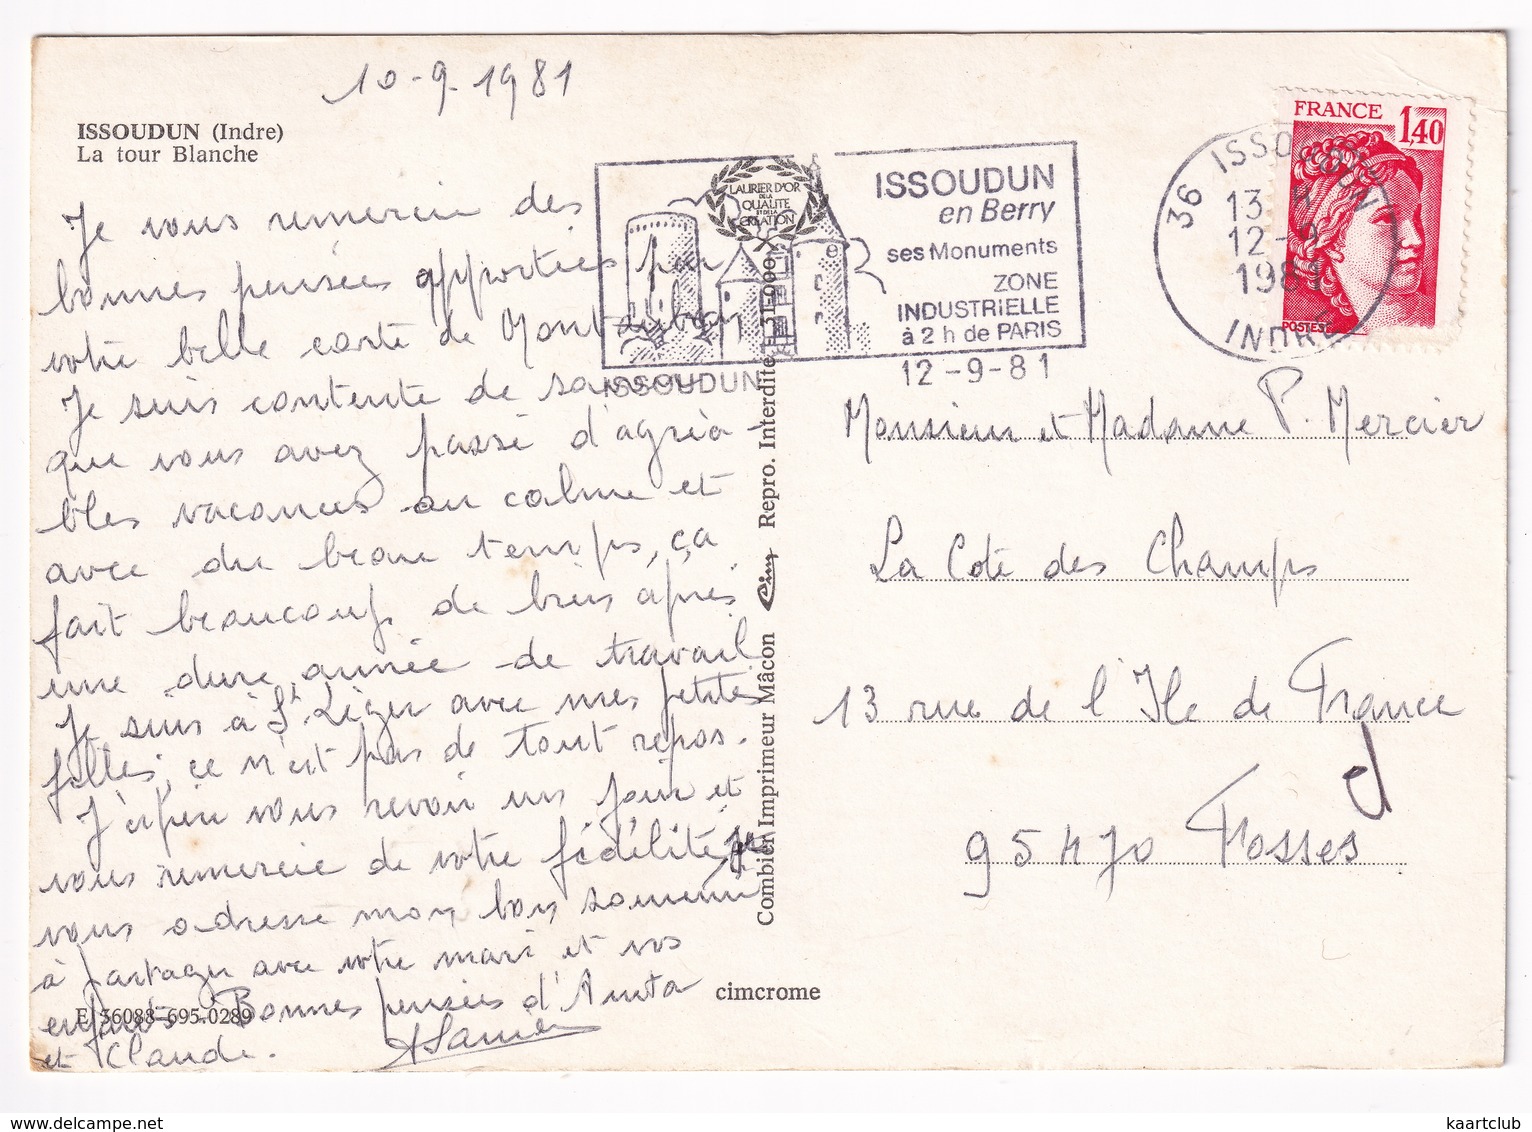 10-9-1981
ISSOUDUN (Indre)
La tour Blanche
Je vous remercie des
bonnes pensées apportées par
votre belle carte de Montauban
Je suis contente de savoir
que vous avez passé d'agréa-
bles vacances au calme et
avec du beau temps, ça
fait beaucoup de bien après
une dure année de travail
Je suis à St Léger avec mes petites
filles, ce n'est pas de tout repos.
J'espère vous revoir un jour et
vous remercie de votre fidélité je
vous adresse mon bon souvenir
à partager avec votre mari et vos
enfants Bonnes pensées d'Anita
et Claude.
E 36088-695.0289
cimcrome
Combier Imprimeur Mâcon Cim Repro. Interdite - 31-000
LAURIER D'OR
DE LA
QUALITE
ET DE LA
CREATION
ISSOUDUN
ISSOUDUN
en Berry
ses Monuments
ZONE
INDUSTRIELLE
à 2 h de PARIS
12-9-81
36 ISSOUDUN
13 H
12-9
1981
INDRE
FRANCE
1,40
POSTES
Monsieur et Madame P. Mercier
La Cote des Champs
13 rue de l'Ile de France
95470 Fosses
kaartclub